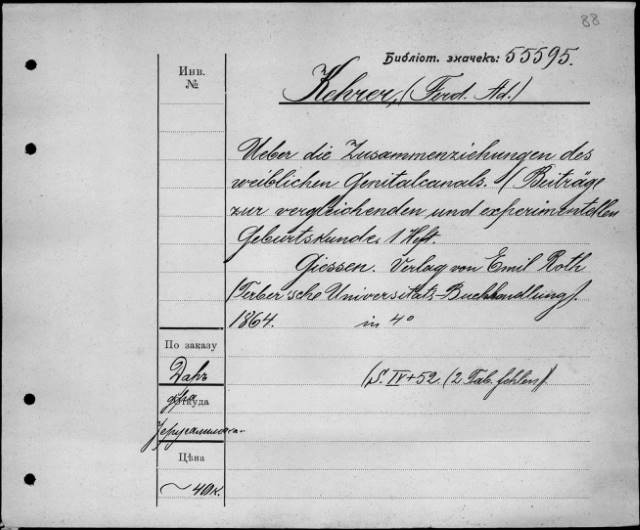 88
Библіот. значекъ: 55595.
Инв.
№
Kehrer, (Ferd. Ad.)
Ueber die Zusammenziehungen des
weiblichen Genitalcanals. (Beiträge
zur vergleichenden und experimentellen
Geburtskunde, 1 Heft.
Giessen. Verlag von Emil Roth
(Ferber'sche Universitäts-Buchhandlung).
1864. in 4°
По заказу
(S. IV + 52. (2 Tab. fehlen).
Даръ
Откуда
Цѣна
~ 40 к.